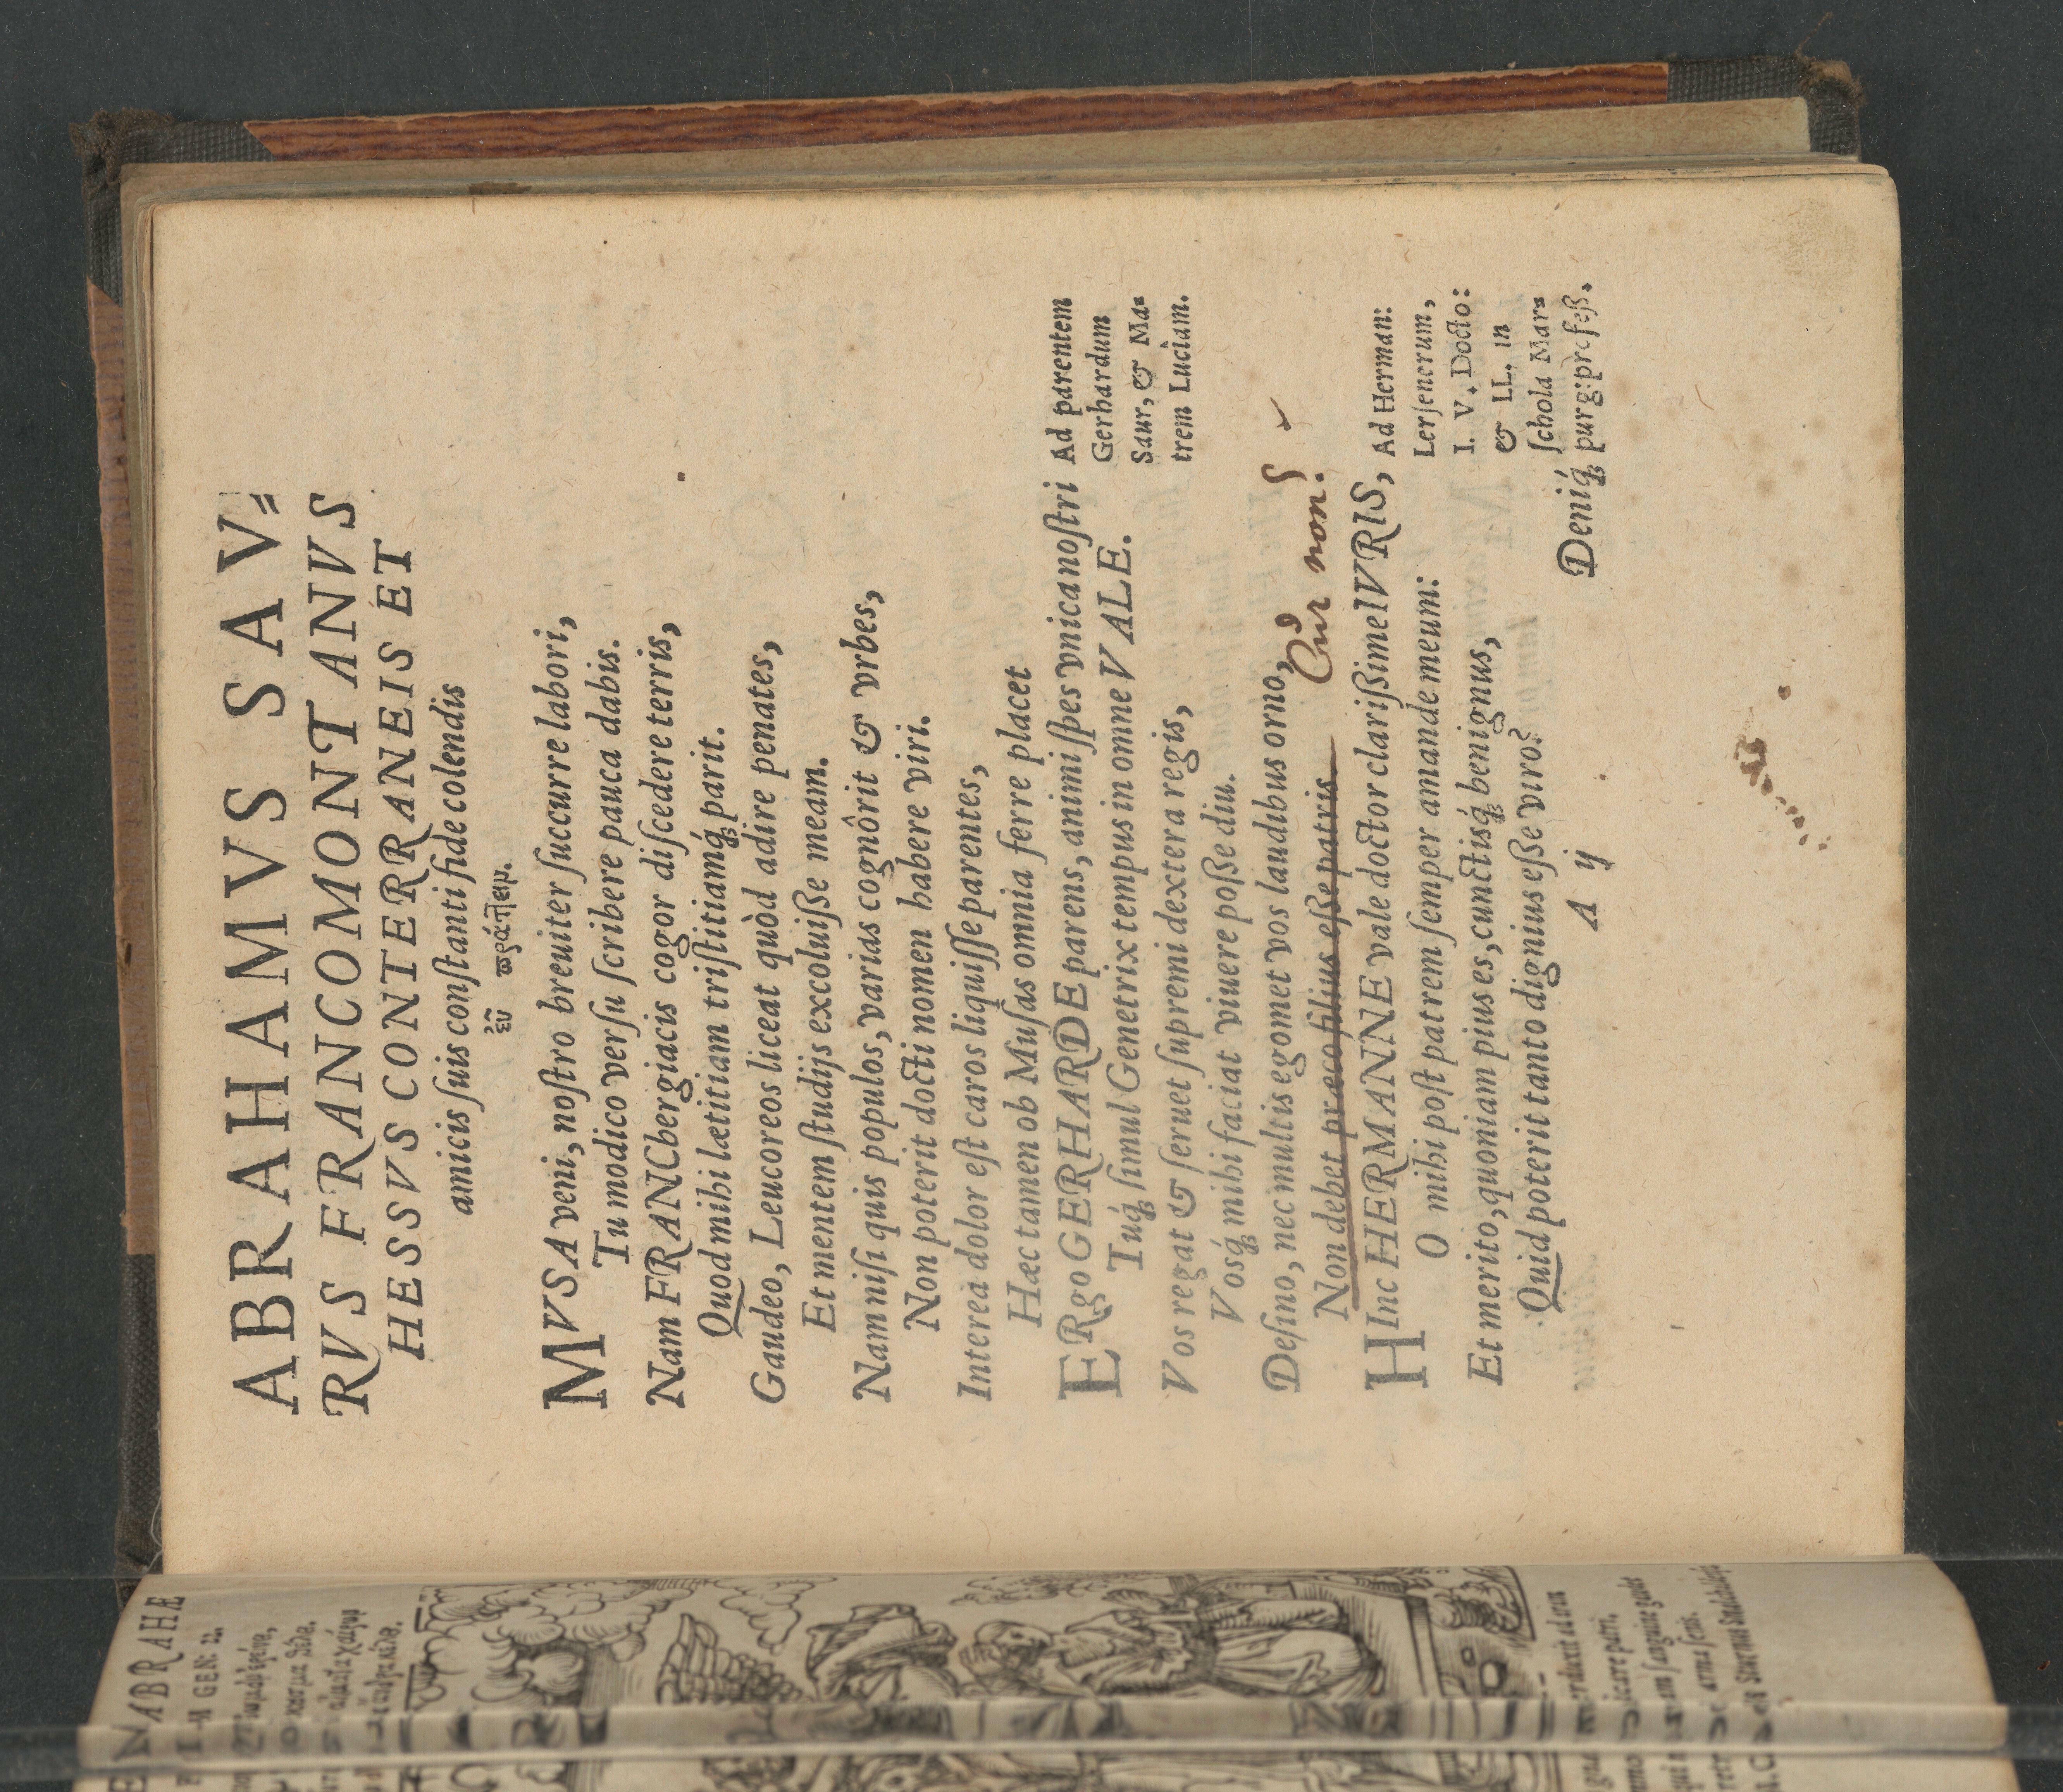 ABRAHAMVS SAV⸗
RVS FRANCOMONTANVS
HESSVS CONTERRANEIS ET
amicis ſuis conſtanti fide colendis
MVSA veni, noſtro breuiter ſuccurre labori,
Tu modico verſu ſcribere pauca dabis.
Nam FRANCbergiacis cogor diſcedere terris,
Quod mihi lætitiam triſtitiamq́; parit.
Gaudeo, Leucoreos liceat quòd adire penates,
Et mentem ſtudijs excoluiße meam.
Nam niſi quis populos, varias cognôrit & vrbes,
Non poterit docti nomen habere viri.
Interea dolor eſt caros liquiſſe parentes,
Hæc tamen ob Muſas omnia ferre placet
ERgo GERHARDE parens, animi ſpes vnica noſtri
Tuq́; ſimul Genetrix tempus in omne VALE.
Ad parentem
Gerhardum
Saur, & Ma⸗
trem Luciam.
Vos regat & ſeruet ſupremi dextera regis,
Vosq́; mihi faciat viuere poße diu.
Deſino, nec multis egomet vos laudibus orno,
Non debet præco filius eße patris.
Cur non?
HInc HERMANNE vale doctor clarißime IVRIS,
O mihi poſt patrem ſemper amande meum:
Et merito, quoniam pius es, cunctisq́; benignus,
Quid poterit tanto dignius eße viro?
Ad Herman:
Lerſenerum,
I. V. Docto:
& LL. in
ſchola Mar⸗
purg: profeß.
A ij
Deniq́;